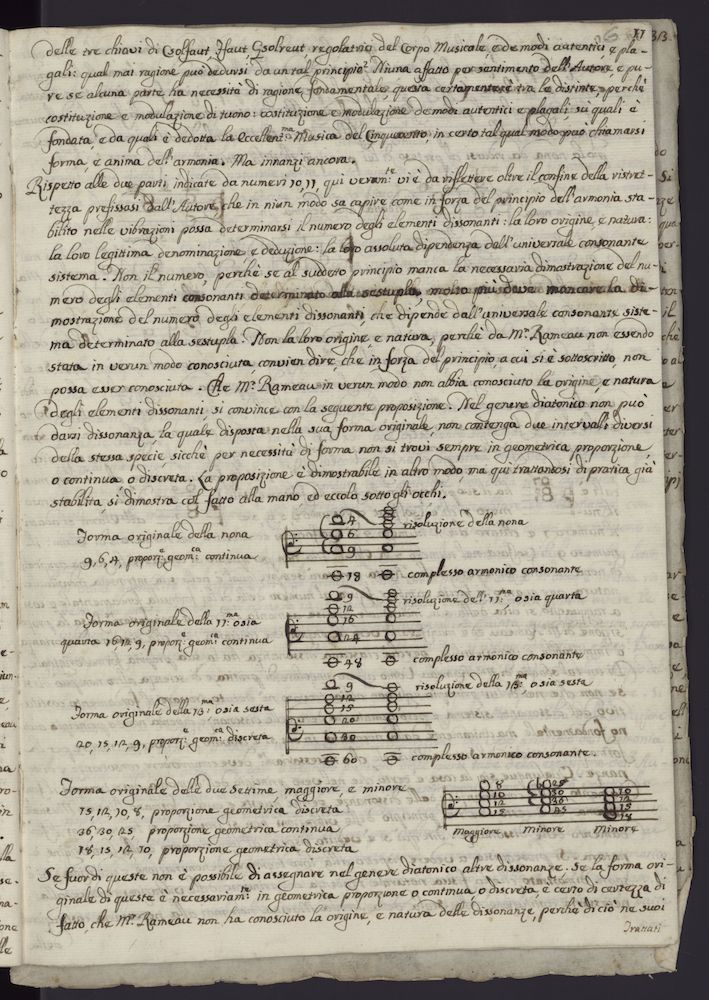 11 313
delle tre chiavi di Csolfaut, Ffaut, Gsolreut regolatrici del Corpo Musicale, e de modi autentici e pla-
gali: qual mai ragione può dedursi da un tal principio? Niuna affatto per sentimento dell'Autore, e pu-
re se alcuna parte ha necessità di ragione fondamentale, questa certamente è tra le distinte, perchè
costituzione e modulazione di tuono: costituzione e modulazione de modi autentici e plagali su quali è
fondata, e da quali è dedotta la Eccellent:ma Musica del Cinquecento, in certo tal qual modo può chiamarsi
forma, e anima dell'armonia. Ma innanzi ancora.
Rispetto alle due parti indicate da numeri 10, 11, qui veram:te vi è da riflettere oltre il confine della ristret-
tezza prefissasi dall'Autore, che in niun modo sa capire come in forza del principio dell'armonia sta-
bilito nelle vibrazioni possa determinarsi il numero degli elementi dissonanti: la loro origine, e natura:
la loro legittima denominazione, e deduzione: la loro assoluta dipendenza dall'universale consonante
sistema. Non il numero, perchè se al suddetto principio manca la necessaria dimostrazione del nu-
mero degli elementi consonanti determinato alla sestupla, molto più deve mancare la di-
mostrazione del numero degli elementi dissonanti, che dipende dall'universale consonante siste-
ma determinato alla sestupla. Non la loro origine, e natura, perchè da Mr. Rameau non essendo
stata in verun modo conosciuta, convien dire, che in forza del principio, a cui si è sottoscritto, non
possa esser conosciuta. Che Mr. Rameau in verun modo non abbia conosciuto la origine, e natura
degli elementi dissonanti si convince con la seguente proposizione. Nel genere diatonico non può
darsi dissonanza, la quale disposta nella sua forma originale, non contenga due intervalli diversi
della stessa specie, sicchè per necessità di forma non si trovi sempre in geometrica proporzione,
o continua, o discreta. La proposizione è dimostrabile in altro modo ma qui trattandosi di pratica già
stabilita si dimostra col fatto alla mano, ed eccolo sotto gli occhi.
Forma originale della nona
9, 6, 4, proporz:e geom:ca continua
4
6
9
18
risoluzione della nona
complesso armonico consonante
Forma originale della 11:ma o sia
quarta 16, 12, 9, proporz:e geom:ca continua
9
12
16
24
48
risoluzione dell'11:ma, o sia quarta
complesso armonico consonante
Forma originale della 13:ma o sia sesta
20, 15, 12, 9, proporz:e geom:ca discreta
9
12
15
20
30
60
risoluzione della 13:ma, o sia sesta
complesso armonico consonante.
Forma originale delle due Settime maggiore, e minore
15, 12, 10, 8, proporzione geometrica discreta
36, 30, 25, proporzione geometrica continua
18, 15, 12, 10, proporzione geometrica discreta
8
10
12
15
maggiore
25
30
36
45
minore
10
12
15
18
Minore
Se fuor di queste non è possibile di assegnare nel genere diatonico altre dissonanze. Se la forma ori-
ginale di queste è necessariam:te in geometrica proporzione o continua o discreta è certo di certezza di
fatto, che Mr. Rameau non ha conosciuto la origine, e natura delle dissonanze, perchè di ciò ne suoi
Trattati